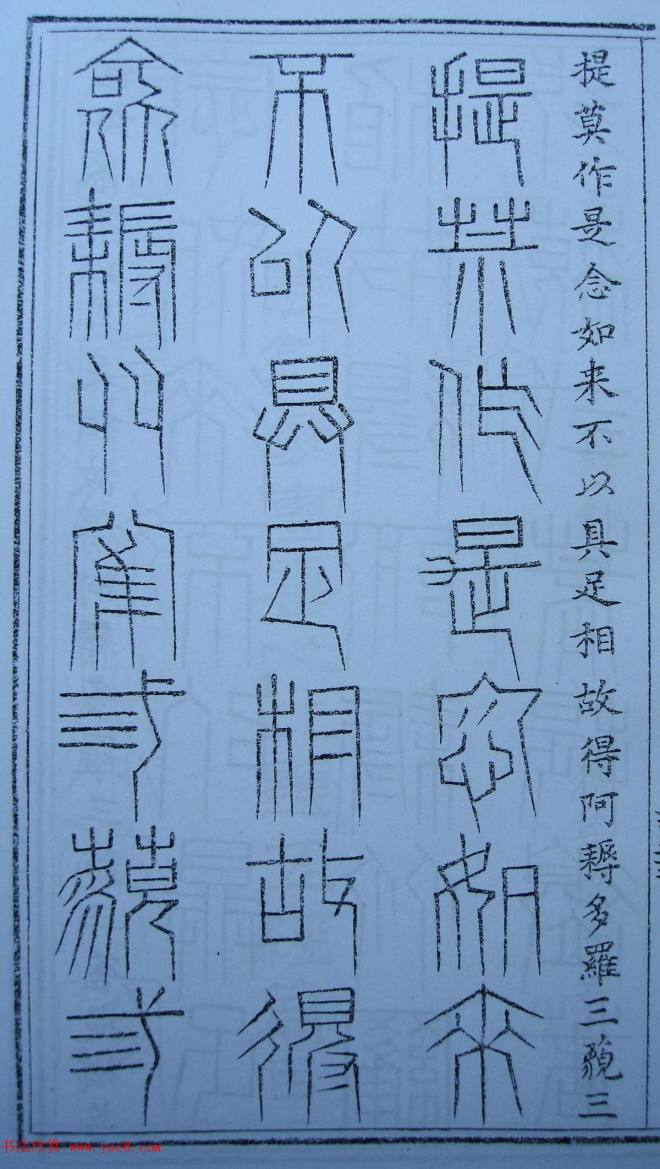 提莫作是念如来不以具足相故得阿耨多羅三藐三
提莫作是念如来
不以具足相故得
阿耨多羅三藐三
书法欣赏 www.yac8.com